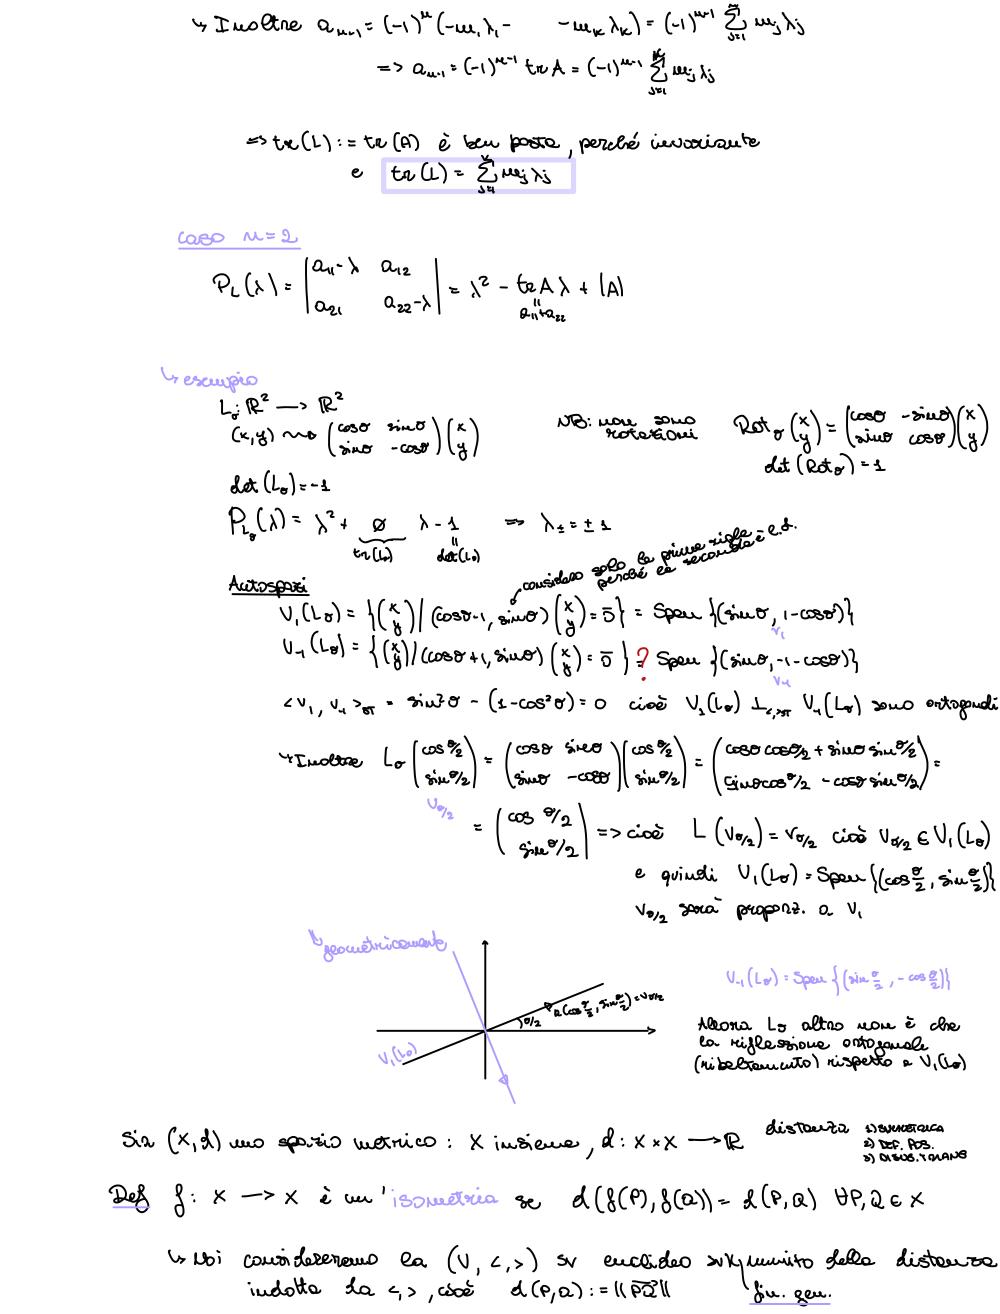 ↳ Inoltre a_{n-1} = (-1)^n (-m_1 λ_1 -      - m_k λ_k) = (-1)^{n-1} Σ_{j=1} m_j λ_j
=> a_{n-1} = (-1)^{n-1} tr A = (-1)^{n-1} Σ_{j=1}^{k} m_j λ_j
=> tr(L) := tr(A) è ben posta, perché invariante
e tr(L) = Σ_{j=1}^{k} m_j λ_j
caso n=2
P_L(λ) = |a_{11}-λ a_{12}; a_{21} a_{22}-λ| = λ² - tr A λ + |A|
"
a_{11}+a_{22}
↳ esempio
L_θ: ℝ² → ℝ²
(x,y) ⇝ (cosθ sinθ; sinθ -cosθ)(x; y)
NB: non sono rotazioni
Rot_θ (x; y) = (cosθ -sinθ; sinθ cosθ)(x; y)
det(Rot_θ) = 1
det(L_θ) = -1
P_{L_θ}(λ) = λ² + ∅ λ - 1 => λ_± = ± 1
tr(L_θ) det(L_θ)
considero solo la prima riga
perché la seconda è l.d.
Autospazi
V_1(L_θ) = {(x; y) / (cosθ-1, sinθ)(x; y) = 0̄} = Span {(sinθ, 1-cosθ)}
v_1
V_{-1}(L_θ) = {(x; y) / (cosθ+1, sinθ)(x; y) = 0̄} =? Span {(sinθ, -1-cosθ)}
v_{-1}
<v_1, v_{-1}>_{ST} = sin²θ - (1-cos²θ) = 0 cioè V_1(L_θ) ⊥_{<,>ST} V_{-1}(L_θ) sono ortogonali
↳ Inoltre L_θ (cos θ/2; sin θ/2) = (cosθ sinθ; sinθ -cosθ)(cos θ/2; sin θ/2) = (cosθ cos θ/2 + sinθ sin θ/2; sinθ cos θ/2 - cosθ sin θ/2) =
v_{θ/2}
= (cos θ/2; sin θ/2) => cioè L(v_{θ/2}) = v_{θ/2} cioè v_{θ/2} ∈ V_1(L_θ)
e quindi V_1(L_θ) = Span {(cos θ/2, sin θ/2)}
v_{θ/2} sarà proporz. a v_1
↳ geometricamente
(cos θ/2, sin θ/2) = v_{θ/2}
θ/2
V_1(L_θ)
V_{-1}(L_θ) = Span {(sin θ/2, -cos θ/2)}
Allora L_θ altro non è che
la riflessione ortogonale
(ribaltamento) rispetto a V_1(L_θ)
Sia (X,d) uno spazio metrico: X insieme, d: X×X → ℝ distanza
1) SIMMETRICA
2) DEF. POS.
3) DISUG. TRIANG
Def f: X → X è un'isometria se d(f(P), f(Q)) = d(P,Q) ∀P,Q ∈ X
↳ Noi considereremo la (V, <,>) sv euclideo munito della distanza
fin. gen.
indotta da <,>, cioè d(P,Q) := ||PQ||